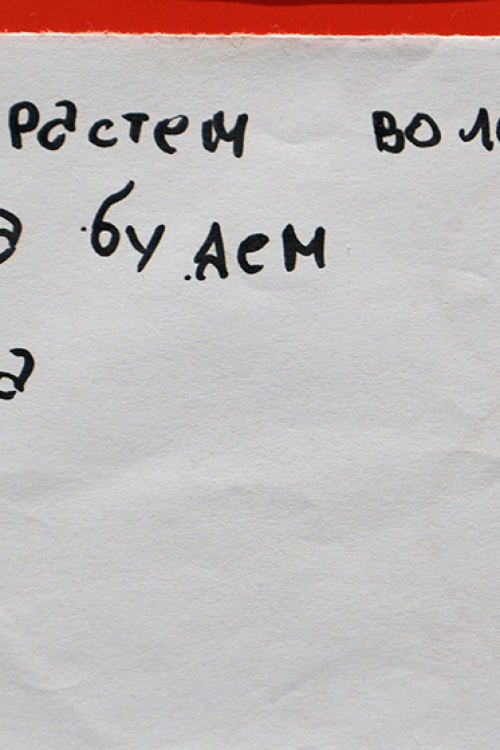 растем во
будем
а